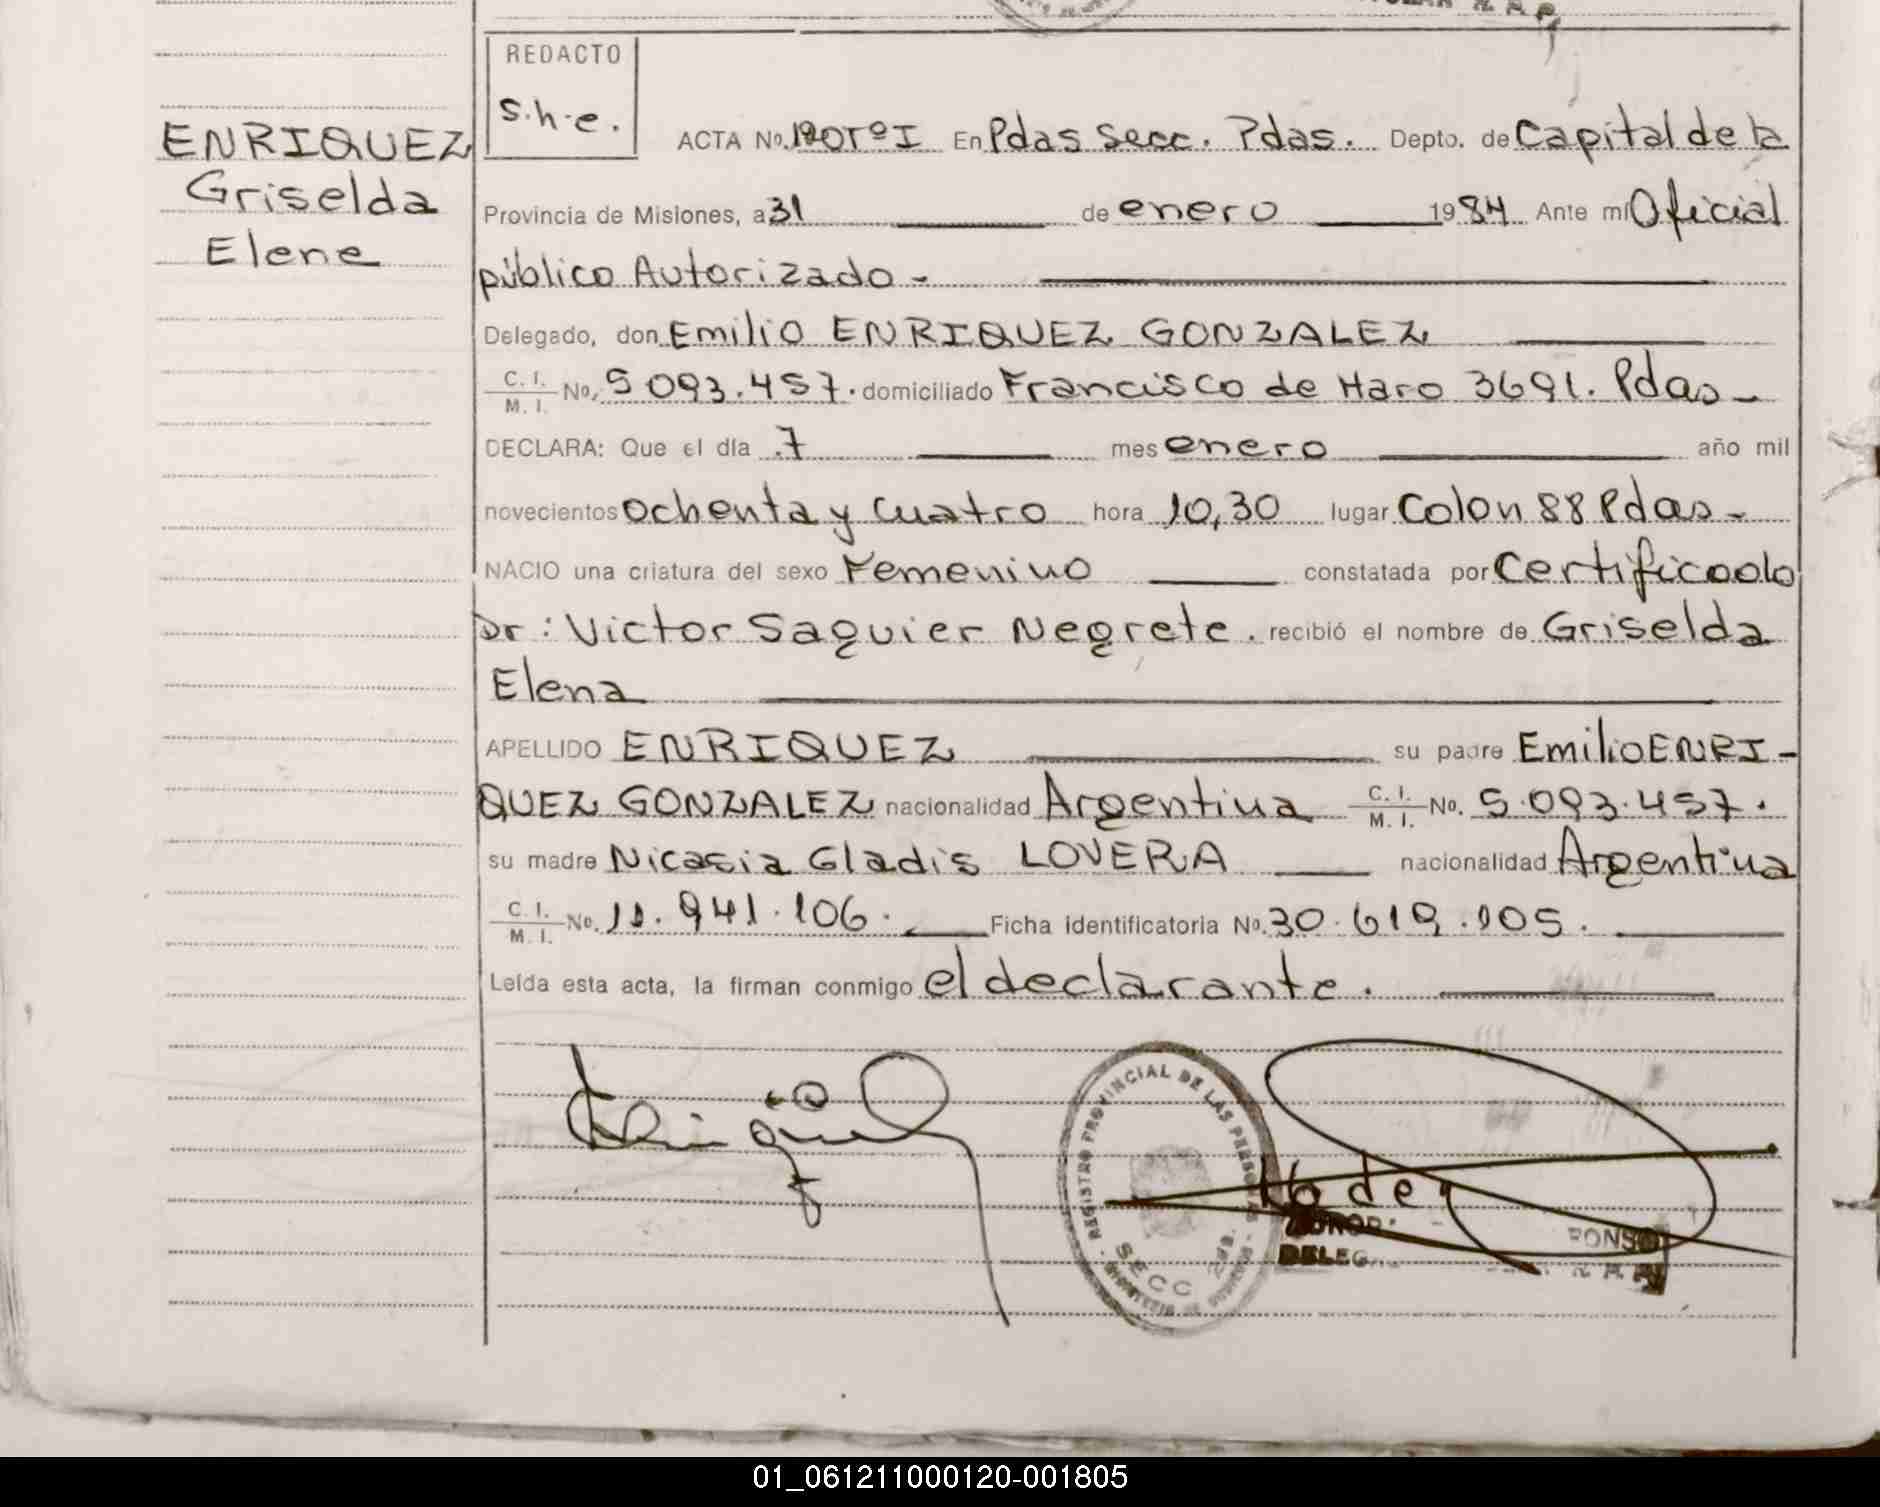 REDACTO
s.h.e.
ENRIQUEZ
Griselda
Elene
ACTA No. 120 Tº I En Pdas Secc. Pdas. Depto. de Capital de la
Provincia de Misiones, a 31 de enero 1984 Ante mí Oficial
público Autorizado -
Delegado, don Emilio ENRIQUEZ GONZALEZ
C. I. M. I. No. 5 093.457. domiciliado Francisco de Haro 3691. Pdas -
DECLARA: Que el día 7 mes enero año mil
novecientos ochenta y cuatro hora 10,30 lugar Colon 88 Pdas -
NACIO una criatura del sexo Femenino constatada por Certificado
Dr: Victor Saguier Negrete. recibió el nombre de Griselda
Elena
APELLIDO ENRIQUEZ su padre Emilio ENRI-
QUEZ GONZALEZ nacionalidad Argentina C. I. M. I. No. 5.093.457.
su madre Nicasia Gladis LOVERA nacionalidad Argentina
C. I. M. I. No. 11.941.106. Ficha identificatoria No. 30.619.105.
Leída esta acta, la firman conmigo el declarante.
REGISTRO PROVINCIAL DE LAS PERSONAS
SECC 2da.
DELEG
01_061211000120-001805